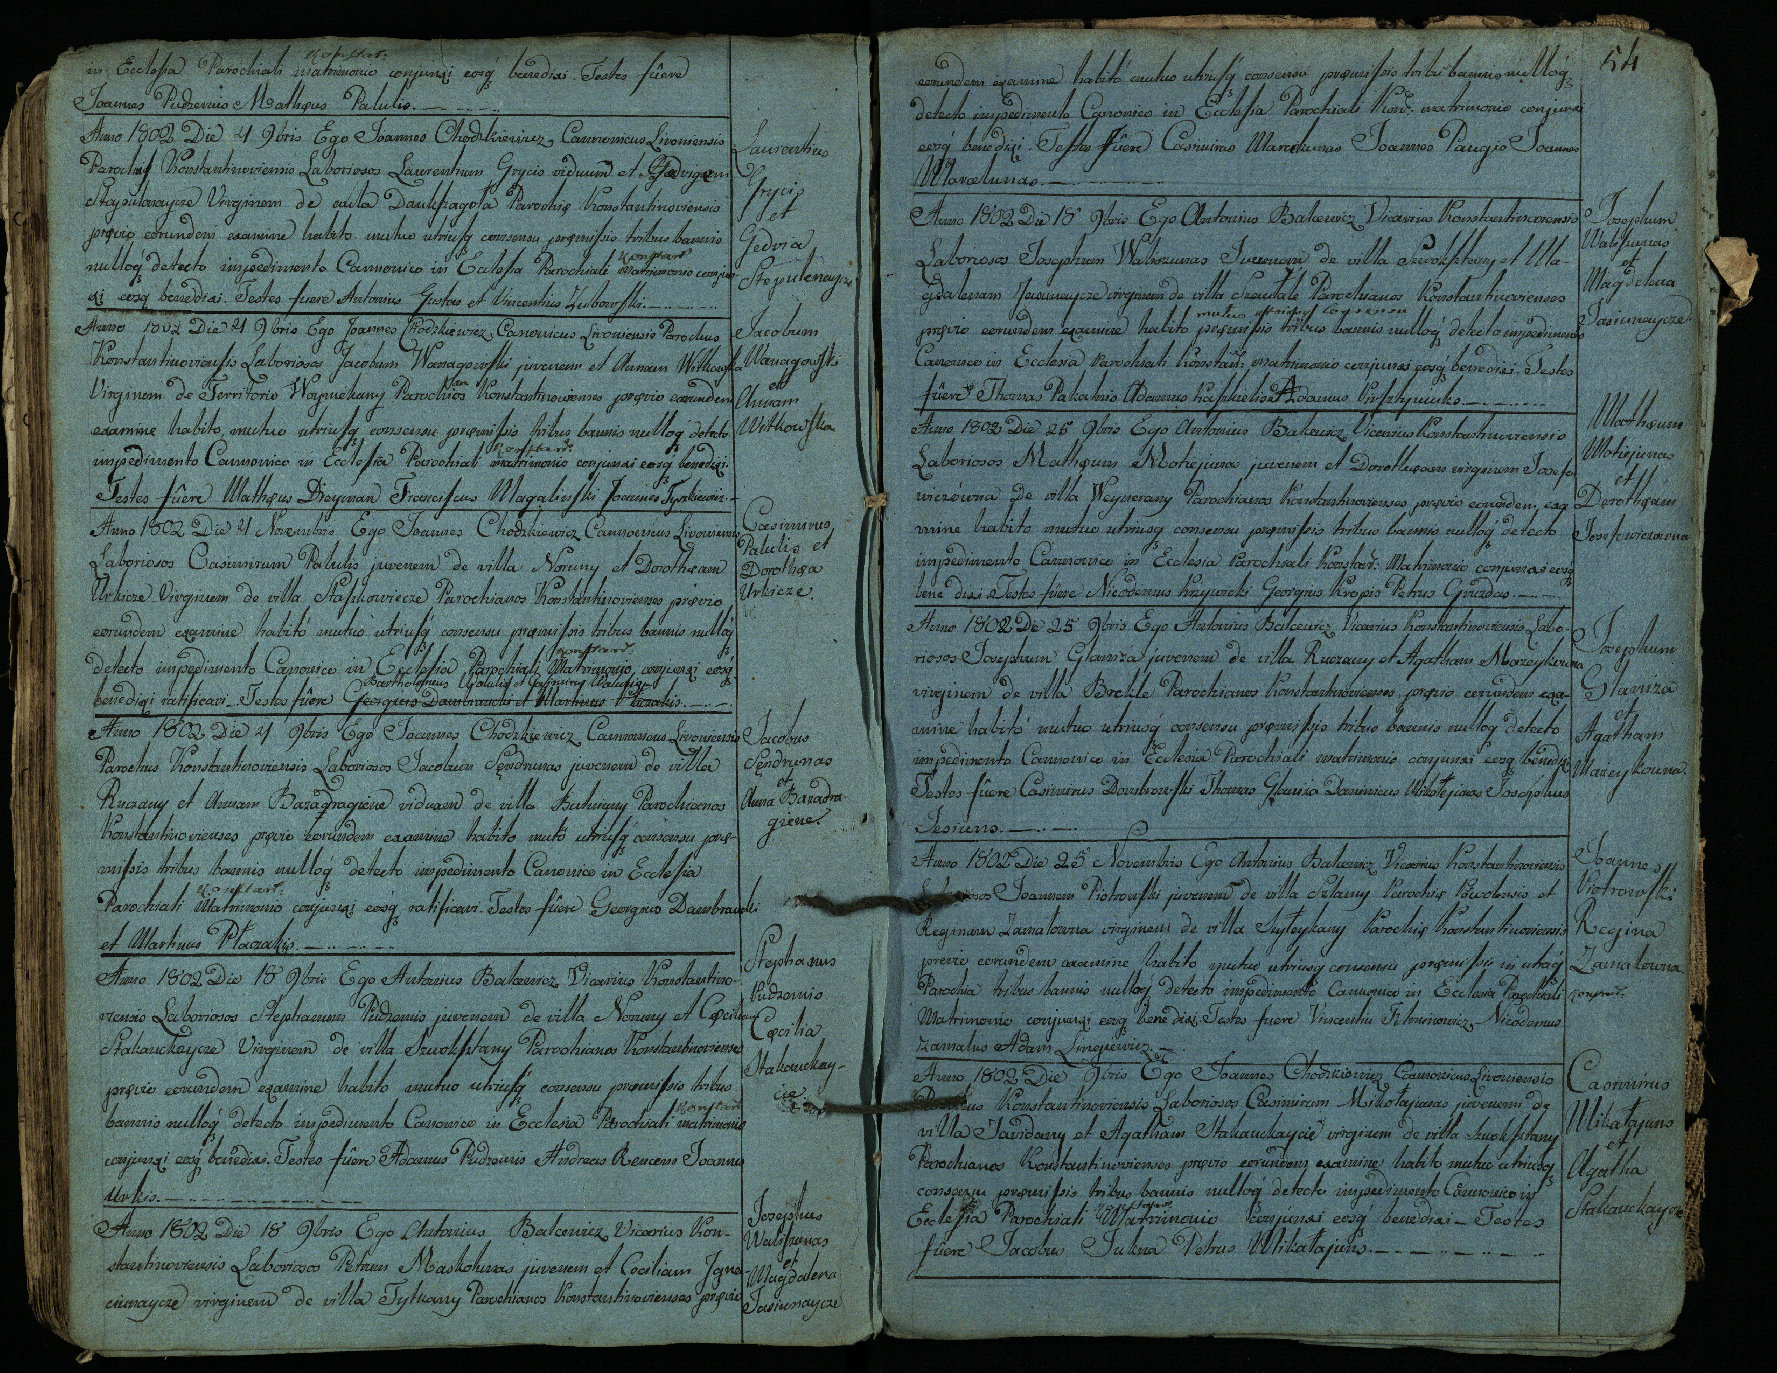 in Ecclesia Parochiali Konstant: matrimonio conjunxi eosq benedixi. Testes fuere
Joannes Pudzemis Mathæus Palulis.
Anno 1802 Die 21 9bris Ego Joannes Chodzkiewicz Cannonicus Livoniensis
Parochus Konstantinoviensis Laboriosos Laurentium Grycis viduum et Gedvigem
Stepulanaycze Virginem de Parochiæ Konstantinoviensis
prævio eorundem examine habito mutuo utriusq consensu præmissis tribus bannis
nulloq detecto impedimento Cannonico in Eclesia Parochiali Konstant matrimonio conjun-
xi eosq benedixi. Testes fuere Antonius Gustas et Vincentius Zubowski.
Laurentius
Grycis
et
Gedvia
Stepulenaycze
Anno 1802 Die 21 9bris Ego Joannes Chodzkiewicz Canonicus Livoniensis Parochus
Konstantinoviensis Laboriosos Jacobum Wanagowski juvenem et Annam Witkowska
Virginem de Territorio Parochianos Konstantinovienses prævio eorundem
examine habito mutuo utriusq consensu præmissis tribus bannis nulloq detecto
impedimento Cannonico in Ecclesia Parochiali Konstant: matrimonio conjunxi eosq benedixi.
Testes fuere Mathæus Dieyman Franciscus Magalinski Joannes
Jacobum
Wanagowski
et
Annam
Witkowska
Anno 1802 Die 21 Novembris Ego Joannes Chodzkiewicz Cannonicus Livoniensis
Laboriosos Casimirum Palulis juvenem de villa Noruny et Dorotheam
Urkicze Virginem de villa Staszkowiecze Parochianos Konstantinovienses prævio
eorundem examine habito mutuo utriusq consensu præmissis tribus bannis nulloq
detecto impedimento Canonico in Ecclesia Parochiali Konstant: Matrimonio conjunxi eosq
Bartholomeus Palulis et Casimirus Palulis
benedixi ratificavi. Testes fuere Georgius Dambrauski et Martinus Ptaczakis.
Casimirus
Palulis et
Dorothea
Urkicze.
Anno 1802 Die 21 9bris Ego Joannes Chodzkiewicz Cannonicus Livoniensis
Parochus Konstantinoviensis Laboriosos Jacobum Sendrunas juvenem de villa
Ruczany et Annam Bazadragiene viduam de villa Butwyny Parochianos
Konstantinovienses prævio eorundem examine habito mutuo utriusq consensu præ-
missis tribus bannis nulloq detecto impedimento Canonico in Ecclesia
Parochiali Konstant: Matrimonio conjunxi eosq ratificavi. Testes fuere Georgius Dambrauski
et Martinus Ptaczakis.
Jacobus
Sendrunas
et
Anna Bazadra
giene.
Anno 1802 Die 18 9bris Ego Antonius Balcewicz Vicarius Konstantino-
viensis Laboriosos Stephanum Pudzemis juvenem de villa Noruny et Cæciliam
Stakauckaycze Virginem de villa Szwoksztany Parochianos Konstantinovienses
prævio eorundem examine habito mutuo utriusq consensu præmissis tribus
bannis nulloq detecto impedimento Canonico in Ecclesia Parochiali Konstant matrimonio
conjunxi eosq benedixi. Testes fuere Adamus Pudzemis Andreas Rencens Joannes
Urkis.
Stephanus
Pudzemis
Cæcilia
Stakauckay-
cie
Anno 1802 Die 18 9bris Ego Antonius Balcewicz Vicarius Kon-
stantinoviensis Laboriosos Petrum Maskolunas juvenem et Ceciliam Igna-
ciunaycze virginem de villa Tytkany Parochianos Konstantinovienses prævio
Josephus
Waliszunas
et
Magdalena
Jasiunaycze
54
eorundem examine habito mutuo utriusq consensu præmissis tribus bannis nulloq
detecto impedimento Canonico in Ecclesia Parochiali Kon: matrimonio conjunxi
eosq benedixi. Testes fuere Casimirus Marcelunas Joannes Paugis Joannes
Marcelunas.
Anno 1802 Die 18 9bris Ego Antonius Balcewicz Vicarius Konstantinoviensis
Laboriosos Josephum Waliszunas Juvenem de villa Szwoksztany et Ma-
gdalenam Jasiunaycze virginem de villa Parochianos Konstantinovienses
prævio eorundem examine habito mutuo utriusq consensu præmissis tribus bannis nulloq detecto impedimento
Canonico in Ecclesia Parochiali Konstant: matrimonio conjunxi eosq benedixi. Testes
fuere Thomas Pakalnis Adamus Kaszkielis Adamus
Josephum
Waliszunas
et
Magdalena
Jasiunaycze
Anno 1802 Die 25 9bris Ego Antonius Balcewicz Vicarius Konstantinoviensis
Laboriosos Mathæum Motiejunas juvenem et Dorotheam virginem Josefo-
wiczówna de villa Weynerany Parochianos Konstantinovienses prævio eorundem exa
mine habito mutuo utriusq consensu præmissis tribus bannis nulloq detecto
impedimento Cannonico in Ecclesia Parochiali Konstan: Matrimonio conjunxi eosq
benedixi. Testes fuere Nicodemus Krzywicki Georgius Kropis Petrus Gruzdas.
Mathæum
Motiejunas
et
Dorotheam
Josefowiczowna
Anno 1802 Die 25 9bris Ego Antonius Balcewicz Vicarius Konstantinoviensis Labo-
riosos Josephum Glamza juvenem de villa Ruczany et Agatham Mazeykowna
virginem de villa Brekle Parochianos Konstantinovienses prævio eorundem exa-
mine habito mutuo utriusq consensu præmissis tribus bannis nulloq detecto
impedimento Cannonico in Ecclesia Parochiali matrimonio conjunxi eosq benedixi
Testes fuere Casimirus Dombrowski Thomas Glamza Dominicus Mikołajunas Josephus
Jesiuns.
Josephum
Glamza
et
Agatham
Mazeykowna.
Anno 1802 Die 25 Novembris Ego Antonius Balcewicz Vicarius Konstantinoviensis
Laboriosos Joannem Piotrowski juvenem de villa Szlamy Parochiæ et
Reginam Zamalowna virginem de villa Szyleykany Parochiæ Konstantinoviensis
prævio eorundem examine habito mutuo utriusq consensu præmissis in utraq
Parochia tribus bannis nulloq detecto impedimento Cannonico in Ecclesia Parochiali
Matrimonio conjunxi eosq benedixi Testes fuere Vincentius Pitrunowicz Nicodemus
Zamalus Adam Lingiewicz.
Joannes
Piotrowski
Regina
Zamalowna
Konst:
Anno 1802 Die 9bris Ego Joannes Chodzkiewicz Cannonicus Livoniensis
Parochus Konstantinoviensis Laboriosos Casimirum Mikołajunas juvenem de
villa Jawdany et Agatham Stakauckaycie virginem de villa Szwoksztany
Parochianos Konstantinovienses prævio eorundem examine habito mutuo utriusq
consensu præmissis tribus bannis nulloq detecto impedimento Cannonico in
Ecclesia Parochiali Konstant: Matrimonio conjunxi eosq benedixi. Testes
fuere Jacobus Jukna Petrus Mikałajuns.
Casimirus
Mikałajuns
et
Agatha
Stakauckaycze